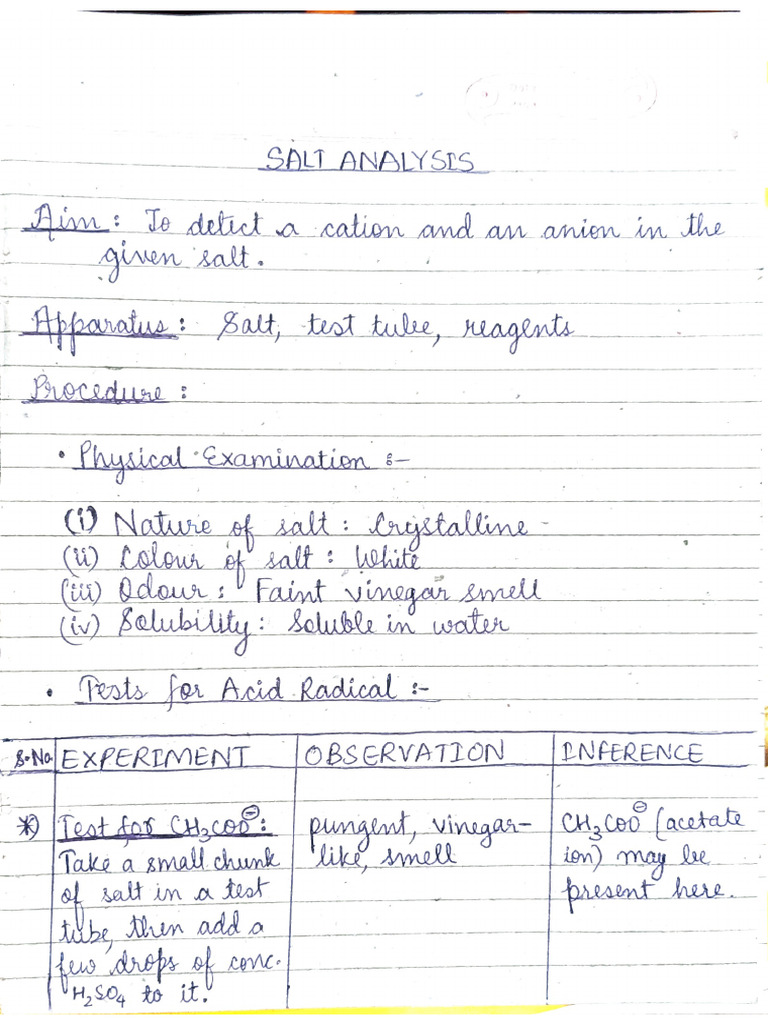 SALT ANALYSIS
Aim : To detect a cation and an anion in the
given salt.
Apparatus : Salt, test tube, reagents
Procedure :
• Physical Examination :-
(i) Nature of salt : Crystalline
(ii) Colour of salt : White
(iii) Odour : Faint vinegar smell
(iv) Solubility : Soluble in water
• Tests for Acid Radical :-
S.No. EXPERIMENT OBSERVATION INFERENCE
*) Test for CH₃COO⊖ : pungent, vinegar- CH₃COO⊖ (acetate
Take a small chunk like, smell ion) may be
of salt in a test present here.
tube, then add a
few drops of conc.
H₂SO₄ to it.